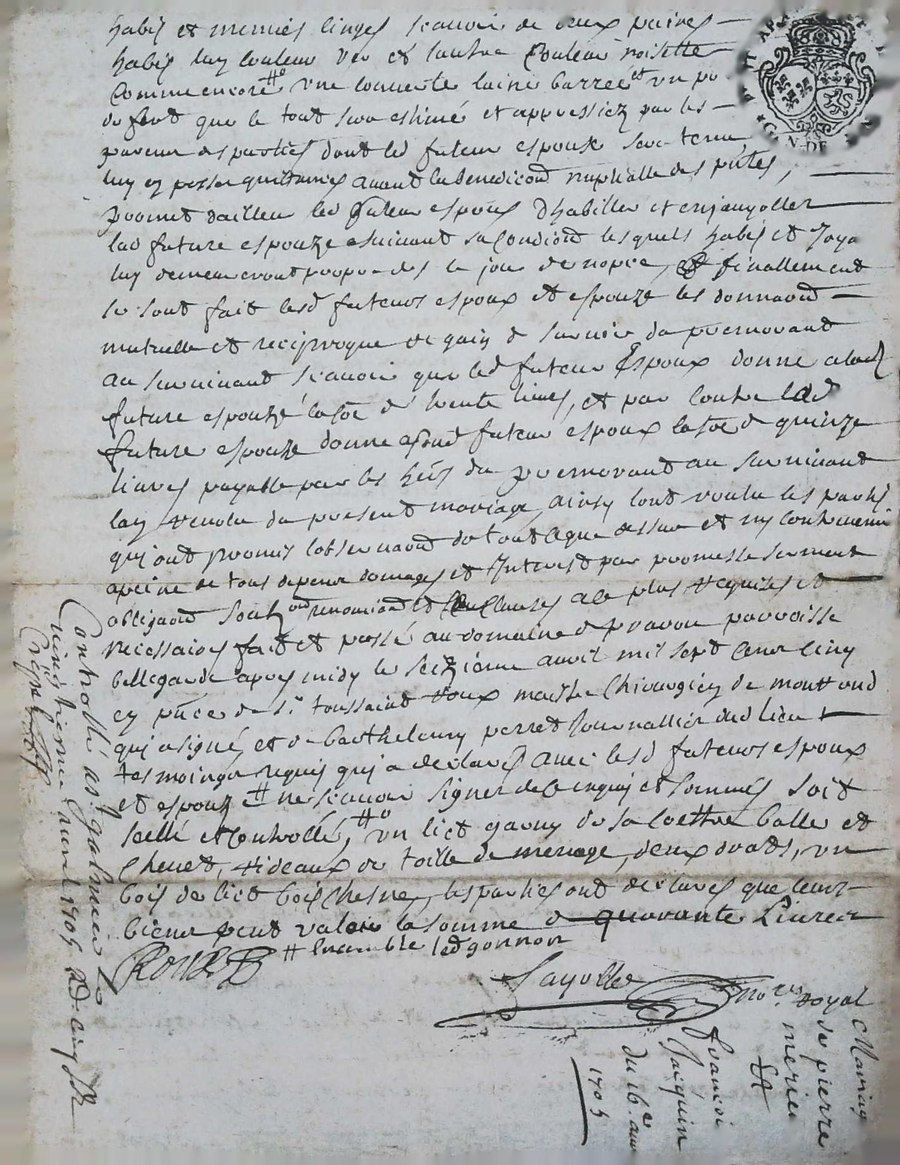 habis et menues linges scavoir de deux paires
habis luy couleur ver et lautre couleur noisette
comme encore une couverte laine barree et un po
de font que le tout sera estimé et appressiez par les
pareins des parties dont led futeur espoux sera tenu
luy en passer quittances avant la benediction nuptialle des parties,
promet dailleu led futeur espoux dhabiller et enjouyoller
lad future espouze suivant sa condiond lesquels habis et Joya
luy demeureront propre des le jour de nopce, et finallement
se sont fait lesd futeurs espoux et espouze les donnaond
mutuelle et reciproque de gain de survie du premourant
au survivant scavoir que led futeur Espoux donne alad
future espouze la soe de trente livres, et par contre lad
future espouze donne aud futeur espoux la soe de quinze
livres payable par les heirs du premourant au survivant
du present mariage, ainsy lont voulu les parties
qui ont promis lobservaond de tout ce que dessus et ny contrevenir
a peine de tous despens domages et Interest par promesse serment
obligaond renonciaond et clauses a ce plus requises et
necessaires fait et passé au domaine de pravou parroisse
bellegarde apres midy le seizieme avril mil sept cent cinq
en pnce de sr toussaint Roux maistre chirurgien de montrond
qui a signé, et de barthelemy perret Journallier dud lieu
tesmoings requis qui a declaré avec lesd futeurs espoux
et espouze ne scavoir signer de ce enquis et sommés soit
scellé et controllé, un lict garny de sa coettre balle et
chevet, rideaux de toille de menage, deux draps, un
bois de lict bois chesne, les parties ont declarés que leurs
biens peut valoir la somme de quarante Livres
ensemble led gonnon
ROUX
Jayolle
nore royal
Controllé a st galmier le
vingtieme avril 1705
Mariag
de pierre
merier
et
francoi
Jacquin
du 16e avr
1705